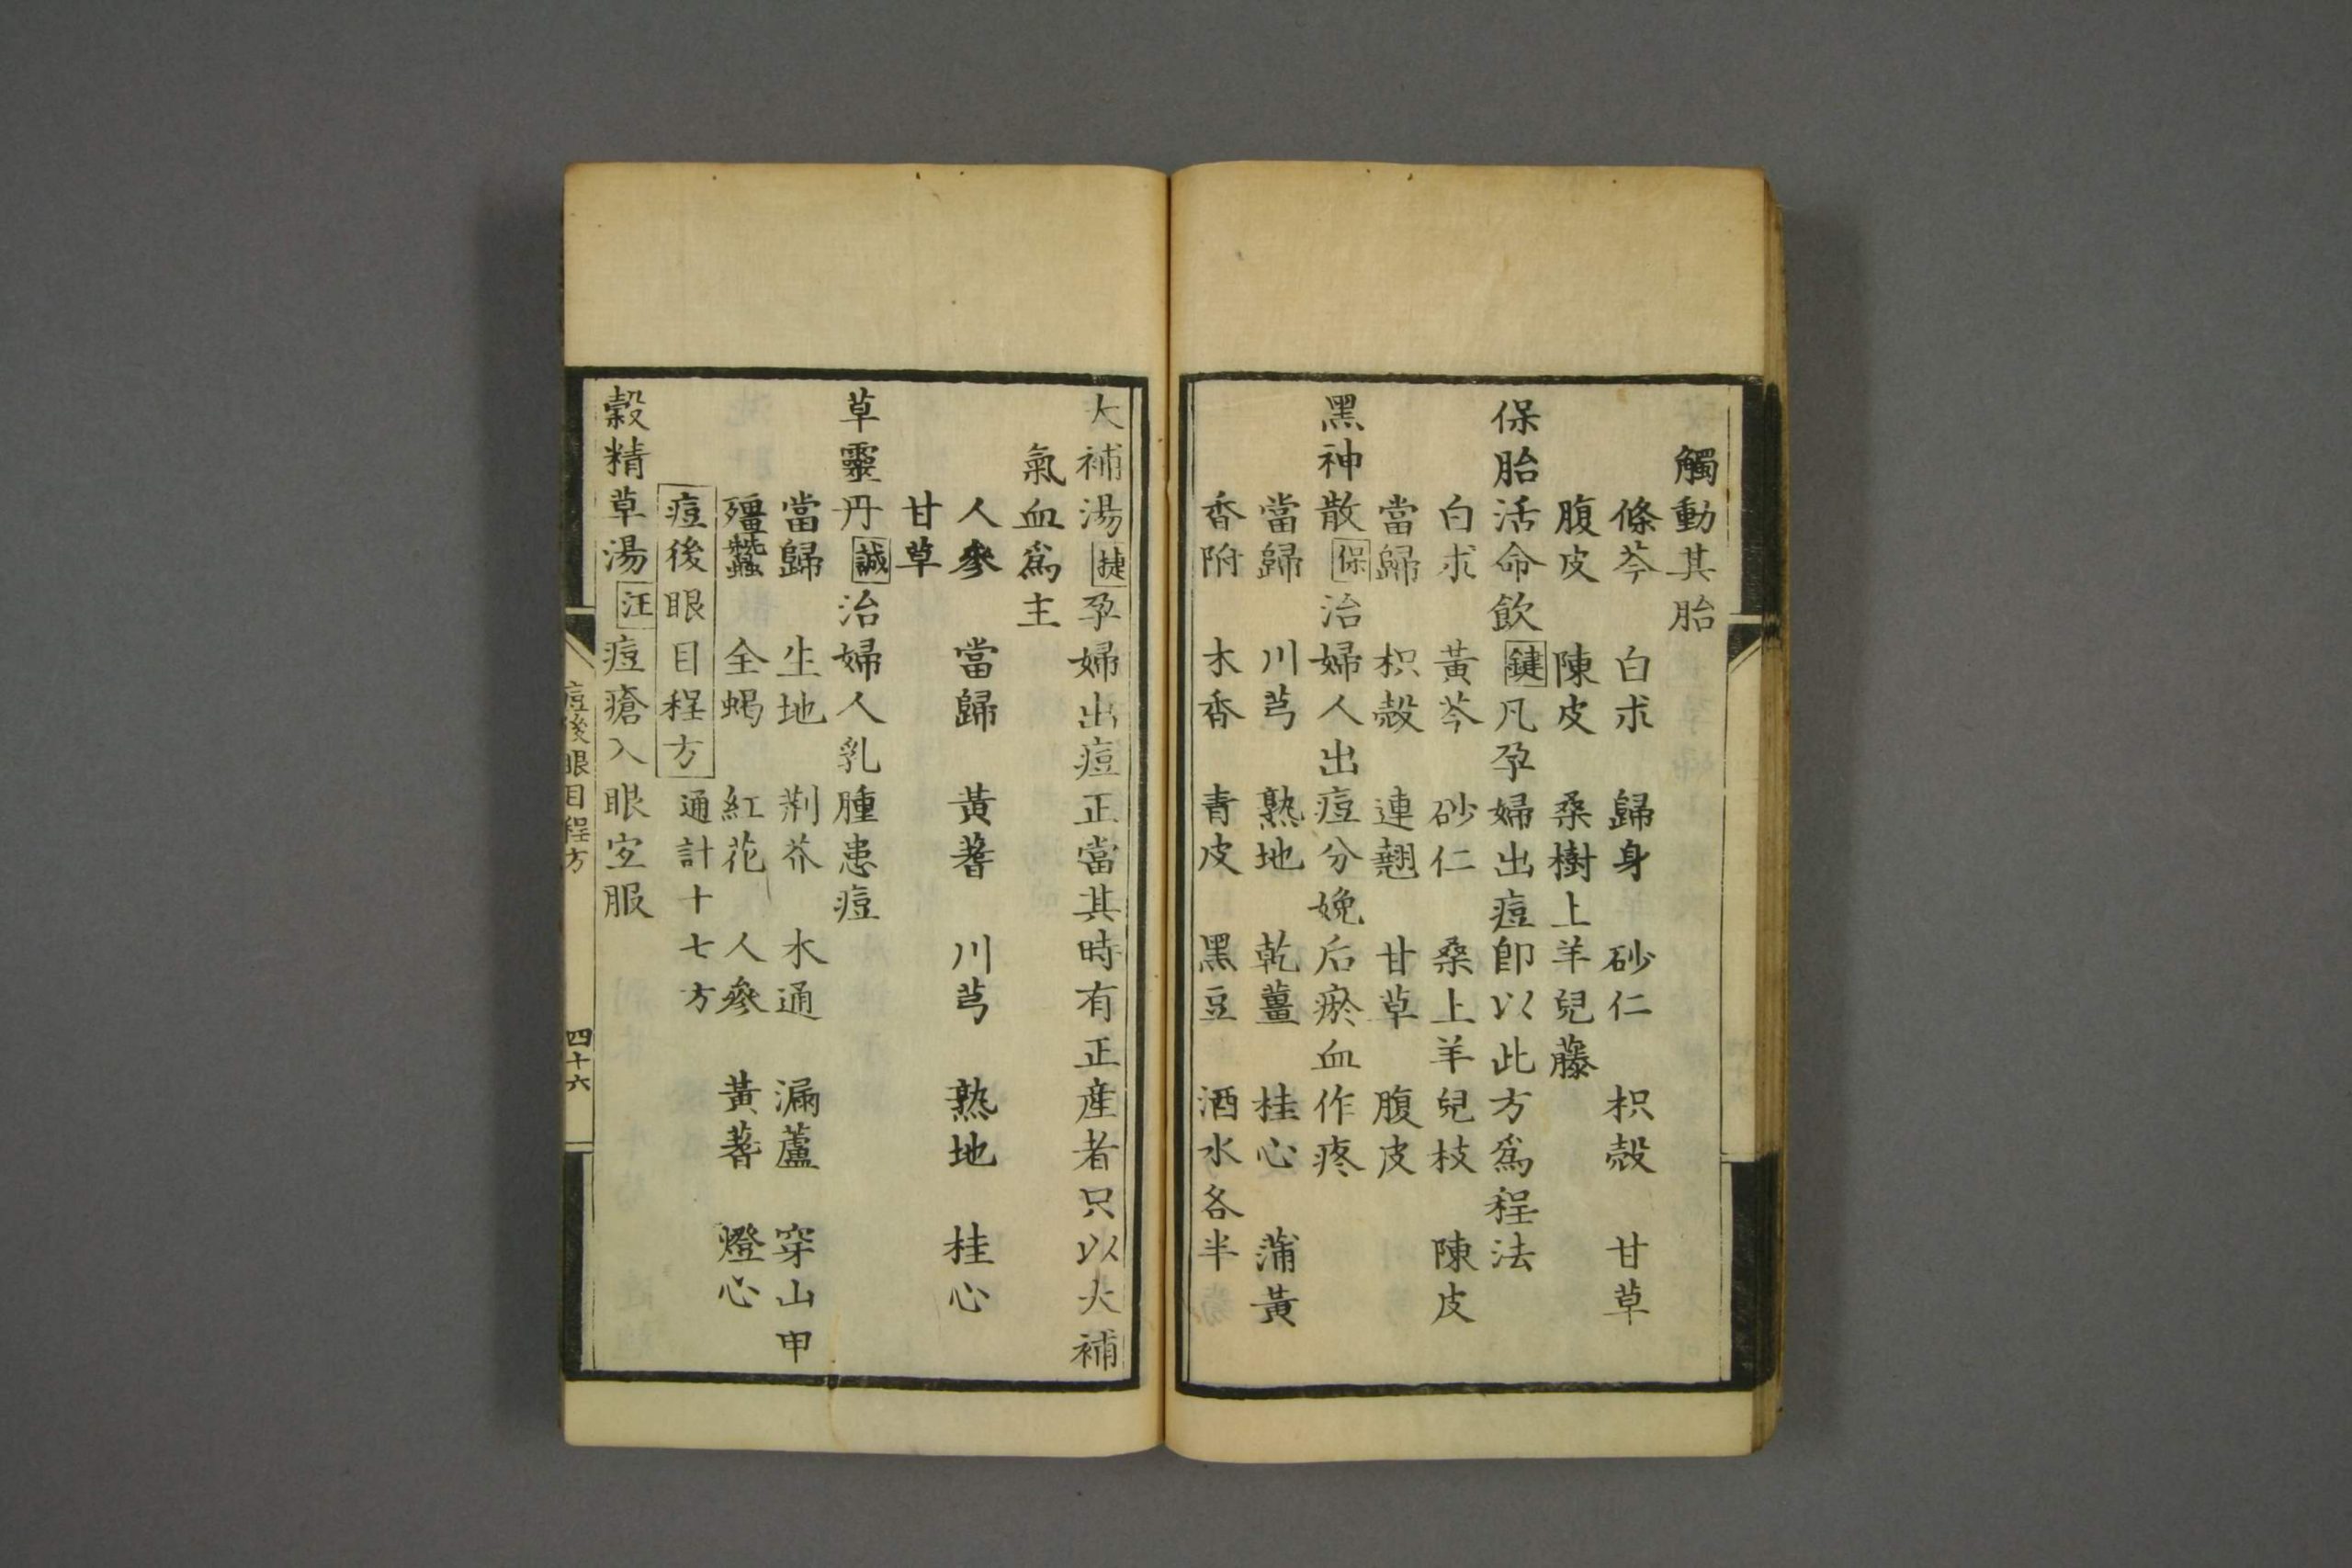 觸動其胎
條芩 白朮 歸身 砂仁 枳殼 甘草
腹皮 陳皮 桑樹上羊兒藤
保胎活命飲 鍵 凡孕婦出痘卽以此方爲程法
白朮 黃芩 砂仁 桑上羊兒枝 陳皮
當歸 枳殼 連翹 甘草 腹皮
黑神散 保 治婦人出痘分娩后瘀血作疼
當歸 川芎 熟地 乾薑 桂心 蒲黃
香附 木香 青皮 黑豆 酒水各半
大補湯 捷 孕婦出痘正當其時有正産者只以大補
氣血爲主
人參 當歸 黃蓍 川芎 熟地 桂心
甘草
草靈丹 誠 治婦人乳腫患痘
當歸 生地 荆芥 木通 漏蘆 穿山甲
殭蠶 全蝎 紅花 人參 黃蓍 燈心
痘後眼目程方 通計十七方
穀精草湯 汪 痘瘡入眼宜服
痘後眼目程方 四十六